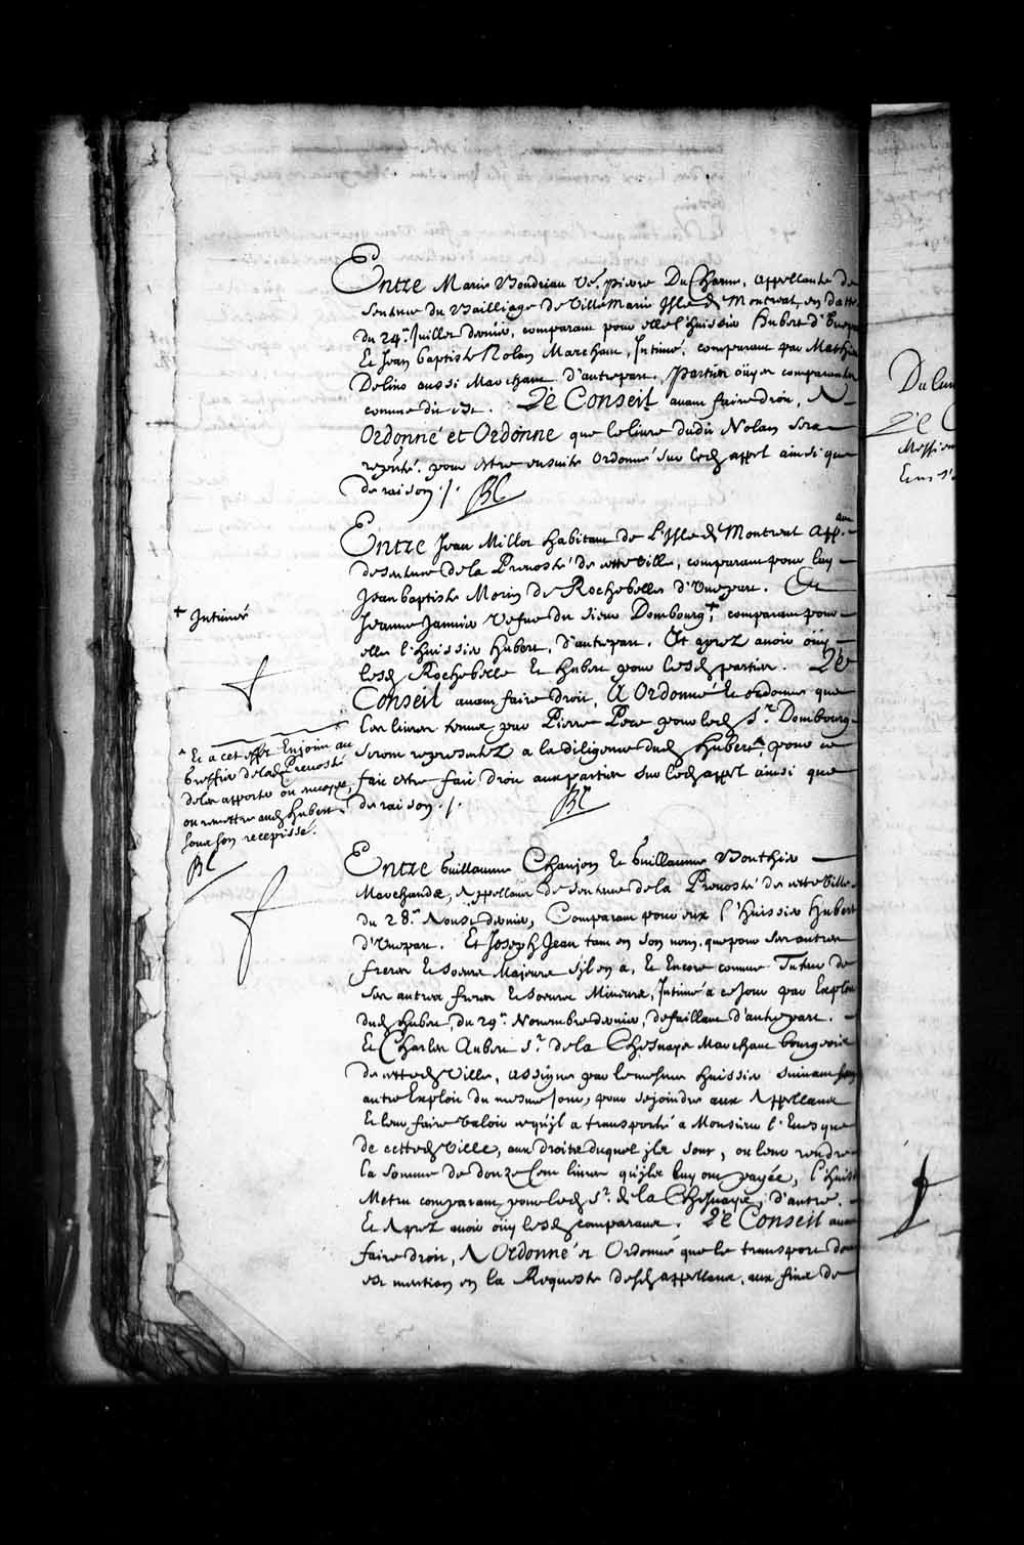 Entre Marie Boudriau Ve. pierre DuCharme, appellante de
Sentence du Bailliage de Villemarie Isle de Montreal, en datte
du 24.e Juillet dernier, comparant pour elle l'huissier hubert d'Unepart
Et Jean baptiste Nolan Marchant, Intimé, comparant par Mathieu
Delino aussi Marchant d'autrepart. Parties oüyes comparantes
comme dit est. Le Conseil avant faire droit, A
Ordonné et Ordonne que le livre dudit Nolan sera
reputé. pour estre ensuite Ordonné sur led. appel ainsi que
de raison ./.
Entre Jean Millot habitant de l'Isle de Montreal app.ant
de sentence de la Prevosté de cette ville, comparant pour luy
Jean baptiste Morin de Rochebelle d'Unepart. Et
Jeanne Jannier Vefve du sieur Dombourg,+ comparant pour
elle l'huissier hubert, d'autrepart. Et aprez avoir oüy
lesd. Rochebelle et hubert pour lesd. parties. Le
Conseil avant faire droit, A Ordonné et ordonne que
les livres tenus par Pierre Pere pour led. Sr. Dombourg
seront representez a la diligence dud. hubert,^ pour ce
fait estre fait droit aux parties sur led. appel ainsi que
de raison ./.
+ Intimée
^ Et a cet effet Enjoint au
Greffier de lad. Prevosté
de les apporter ou envoyer,
ou remettre aud. hubert
sous son recepissé.
Entre Guillaume Chanjon et Guillaume Bouthier
Marchands, Appellans de sentence de la Prevosté de cette ville
du 28.e Aoust dernier, Comparant pour eux l'huissier hubert
d'Unepart. Et Joseph Jean tant en son nom, que pour ses autres
freres et soeurs Majeurs s'il en a, et Encore comme Tuteur de
ses autres freres et soeurs Mineurs, Intimé a ce jour par Exploit
dud. hubert, du 29.e Novembre dernier, defaillant d'autrepart.
Et Charles Aubert Sr. de la Chesnaye Marchant bourgeois
de cetted. Ville, assigné par le mesme huissier suivant son
autre Exploit du mesme jour, pour se joindre aux Appellans
et leur faire valoir ce qu'il a transporté a Monsieur l'Evesque
de cetted. Ville, aux droits duquel ils sont, ou leur rendre
la somme de douze cent livres qu'ils luy ont payée, l'huissier
Metru comparant pour led. Sr. de la Chesnaye, d'autre.
Et Aprez avoir oüy lesd. comparans. Le Conseil avant
faire droit, A Ordonné et Ordonne que le transport dont
est mention en la Requeste desd. appellans, aux fins de
Du lun
Le C
Messieurs